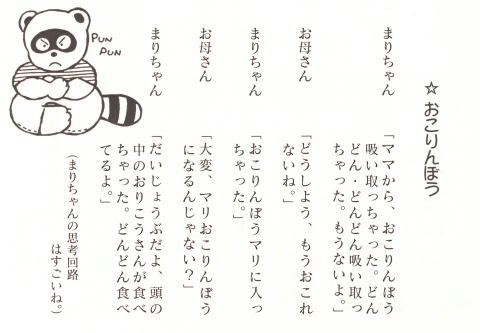 ☆ おこりんぼう
まりちゃん 「ママから、おこりんぼう
吸い取っちゃった。どん
どん・どんどん吸い取っ
ちゃった。もうないよ。」
お母さん 「どうしよう、もうおこれ
ないね。」
まりちゃん 「おこりんぼうマリに入っ
ちゃった。」
お母さん 「大変、マリおこりんぼう
になるんじゃない？」
まりちゃん 「だいじょうぶだよ、頭の
中のおりこうさんが食べ
ちゃった。どんどん食べ
てるよ。」
（まりちゃんの思考回路
はすごいね。）
PUN
PUN